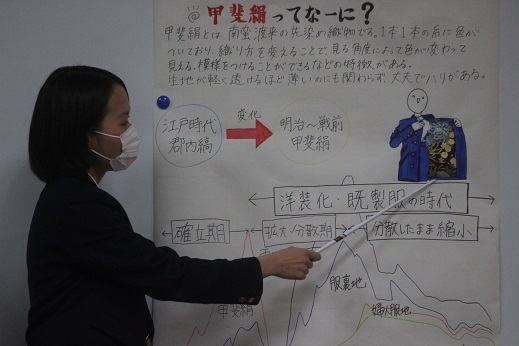 甲斐絹ってなーに？
甲斐絹とは、南蛮渡来の先染め織物です。1本1本の糸に色が
ついており、織り方を変えることで、見る角度によって色が変わって
見える、模様をつけることができるなどの特徴がある。
生地が軽く透けるほど薄いのにも関わらず、丈夫でハリがある。
江戸時代
郡内縞
変化
明治〜戦前
甲斐絹
洋装化・既製服の時代
確立期
拡大・分散期
分散したまま縮小
甲斐絹
服裏地
婦人服地